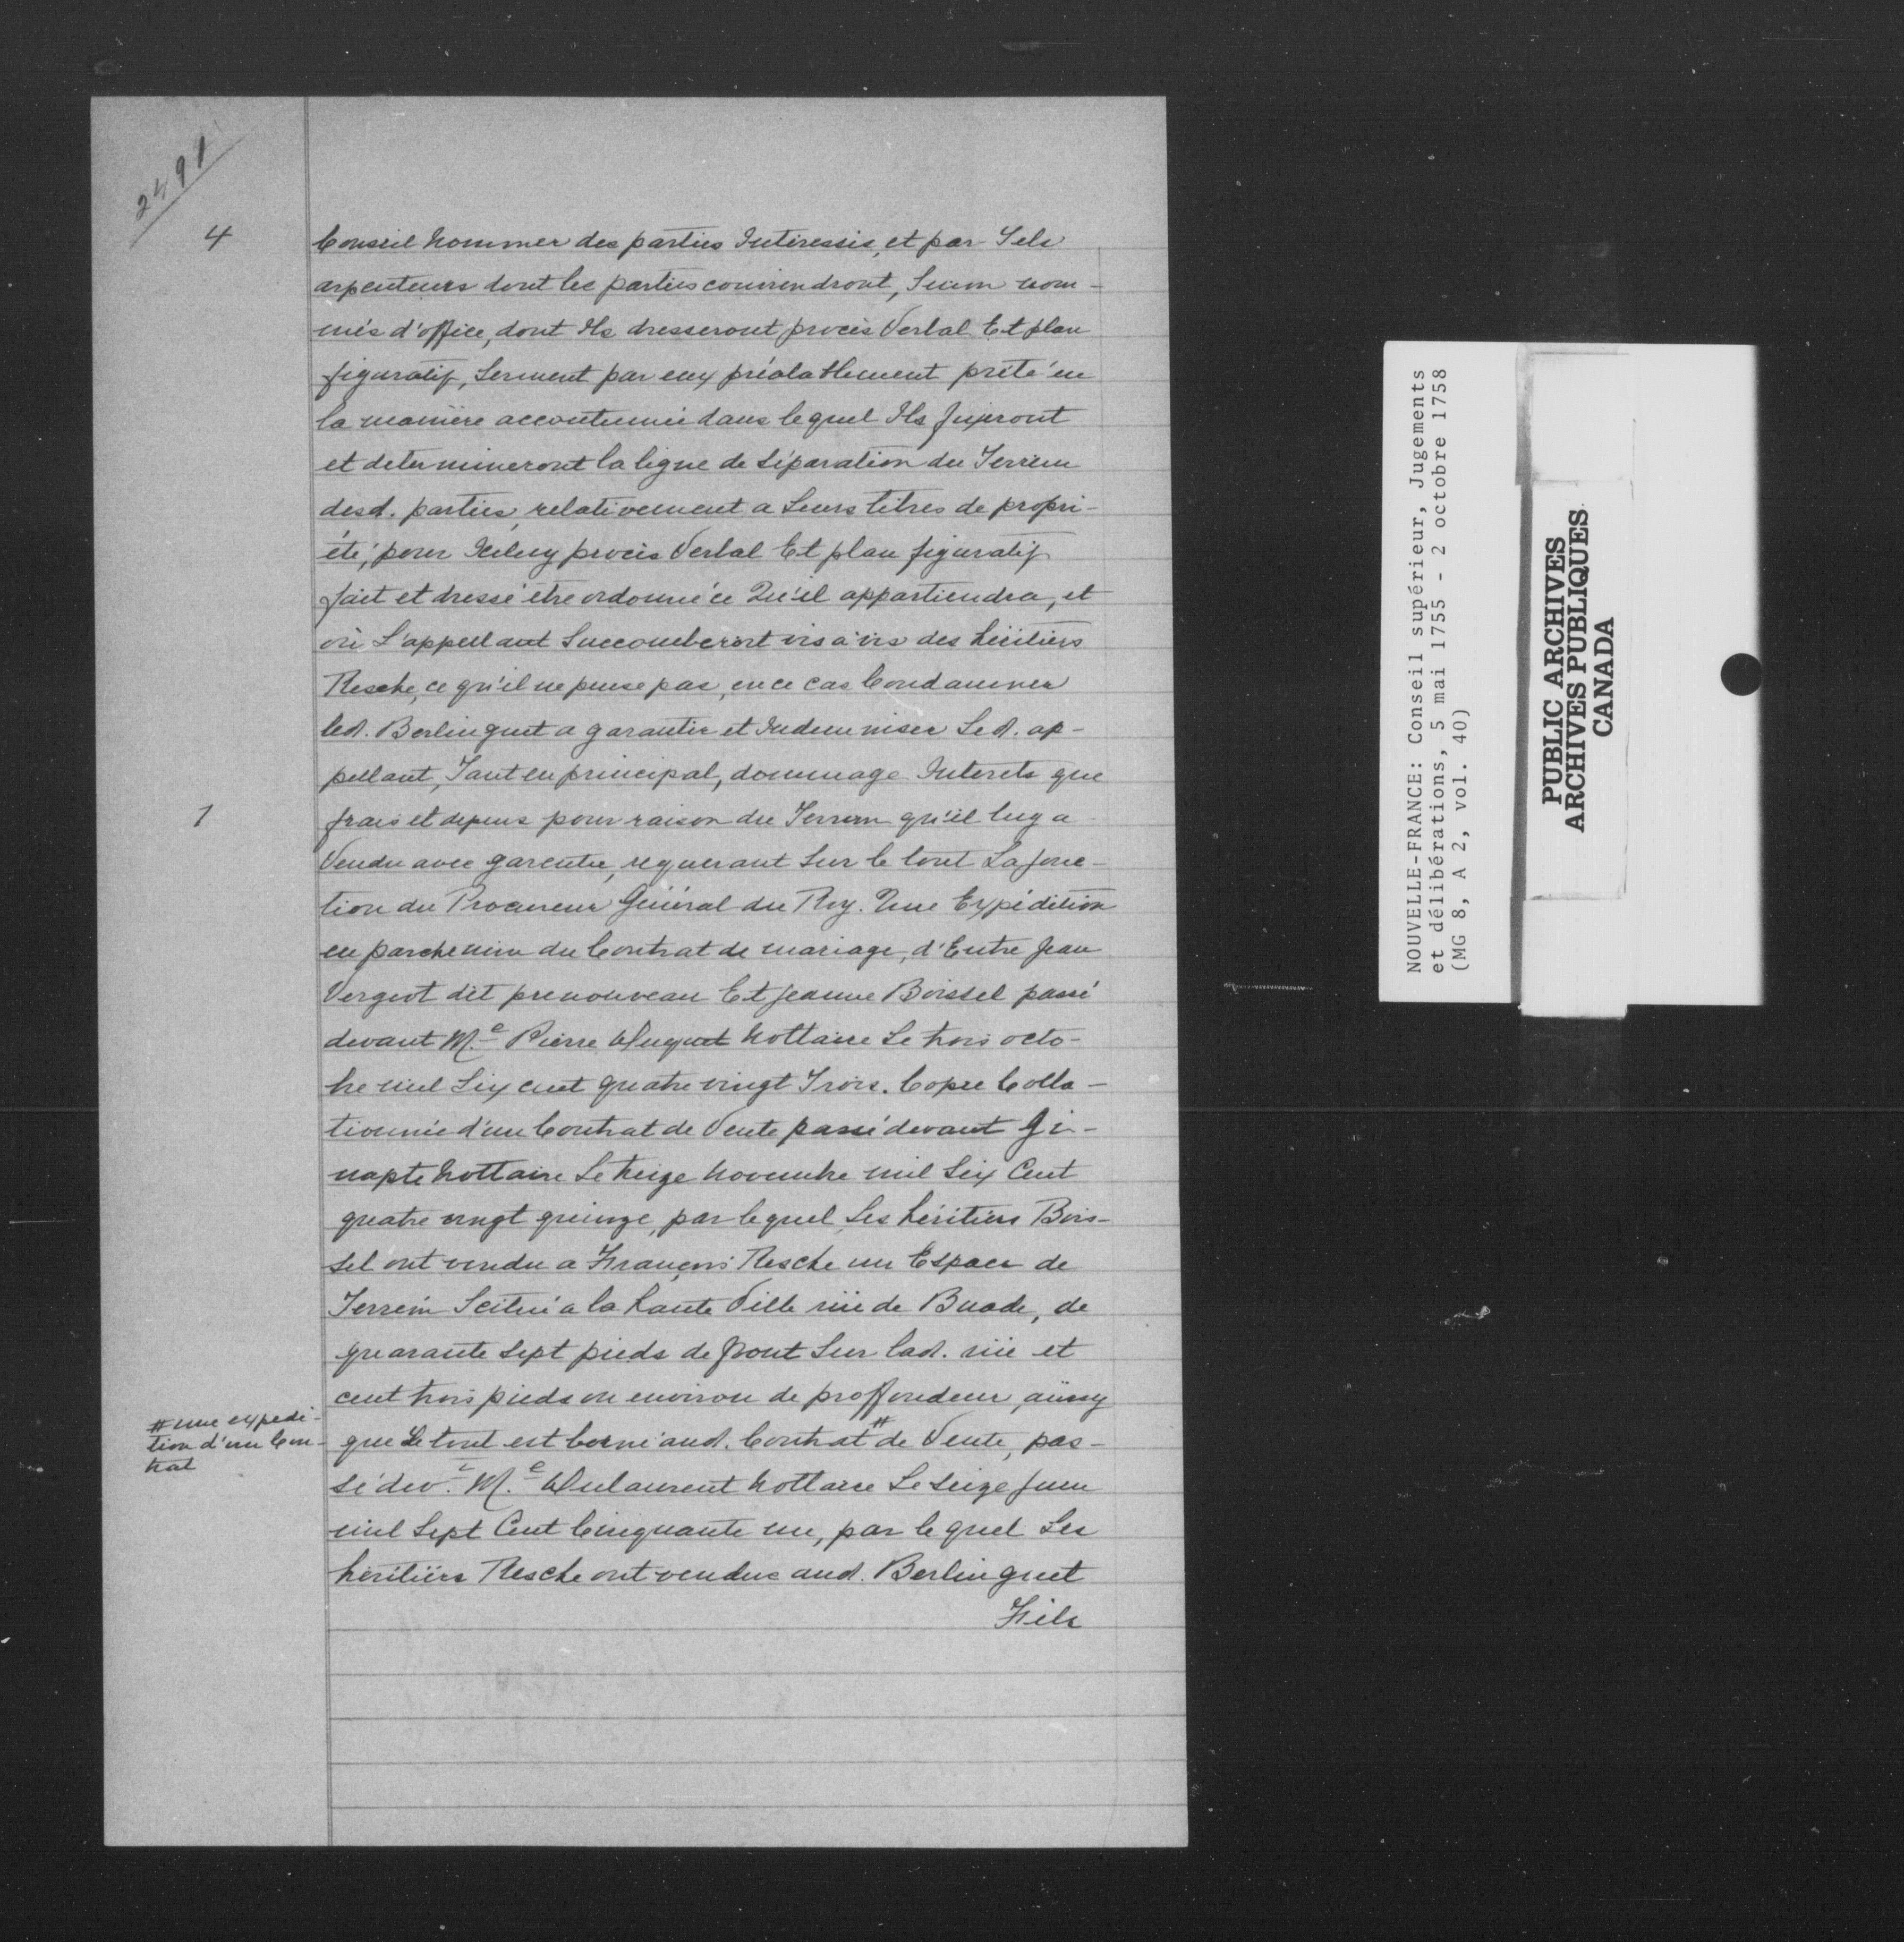 2491
4
Conseil nommer des parties Intéressés, et par Tels
arpenteurs dont les parties conviendront, Sinon nom-
més d'office, dont Ils dresseront procès Verbal Et plan
figuratif, Serment par eux préalablement prété en
la manière accoutumée dans lequel Ils fixeront
et determineront la ligne de Séparation du Terrein
desd. parties, relativement a Leurs titres de propri-
été, pour Iceluy procès Verbal Et plan figuratif
fait et dressé être ordonné ce Qu'il appartiendra, et
où L'appellant Succomberoit vis a vis des héritiers
Resche, ce qu'il ne pense pas, en ce cas Condamner
led. Berlinguet a garantir et Indemniser Led. ap-
pellant, Tant en principal, dommage Interets que
1
frais et depens pour raison du Terrein qu'il luy a
Vendu avec garentie, requerant Sur le tout La jonc-
tion du Procureur Général du Roy. Une Expédition
en parchemin du Contrat de mariage, d'Entre Jean
Vergeot dit prenouveau Et Jeanne Boissel passé
devant M.e Pierre Duquet Nottaire Le trois octo-
bre mil Six cent quatre vingt Trois. Copie Colla-
tionnée d'un Contrat de Vente passé devant Ge-
naple Nottaire Le treize Novembre mil Six Cent
quatre vingt quinze, par lequel Les héritiers Bois-
sel ont vendu a François Resche un Espace de
Terrein Scitué a la haute Ville rüe de Buade, de
quarante Sept pieds de front Sur lad. rüe et
cent trois pieds ou environ de proffondeur, ainsy
que Le tout est borné aud. Contrat # de Vente, pas-
# une expedi-
tion d'un Con-
trat
sé dev.t M.e Dulaurent Nottaire Le Seize Juin
mil Sept Cent Cinquante un, par lequel Les
héritiers Resche ont vendus aud. Berlinguet
Fils
NOUVELLE-FRANCE: Conseil supérieur, Jugements
et délibérations, 5 mai 1755 - 2 octobre 1758
(MG 8, A 2, vol. 40)
PUBLIC ARCHIVES
ARCHIVES PUBLIQUES
CANADA